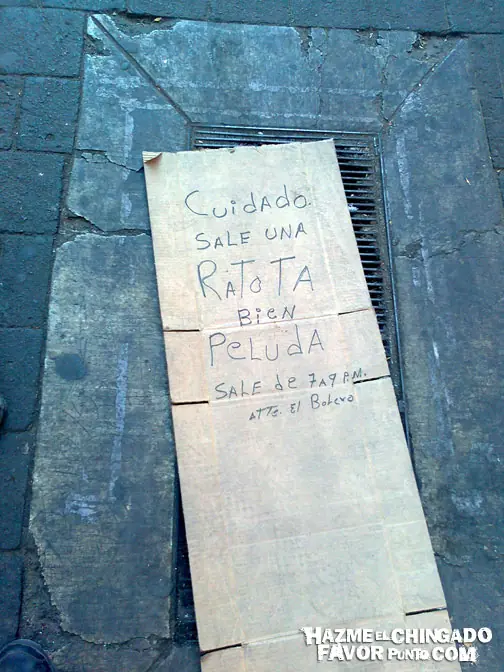 Cuidado.
SALE UNA
RATOTA
BIEN
PELUDA
SALE de 7 A 9 P.M.
ATTE. El Bolero
HAZME EL CHINGADO
FAVOR PUNTO COM